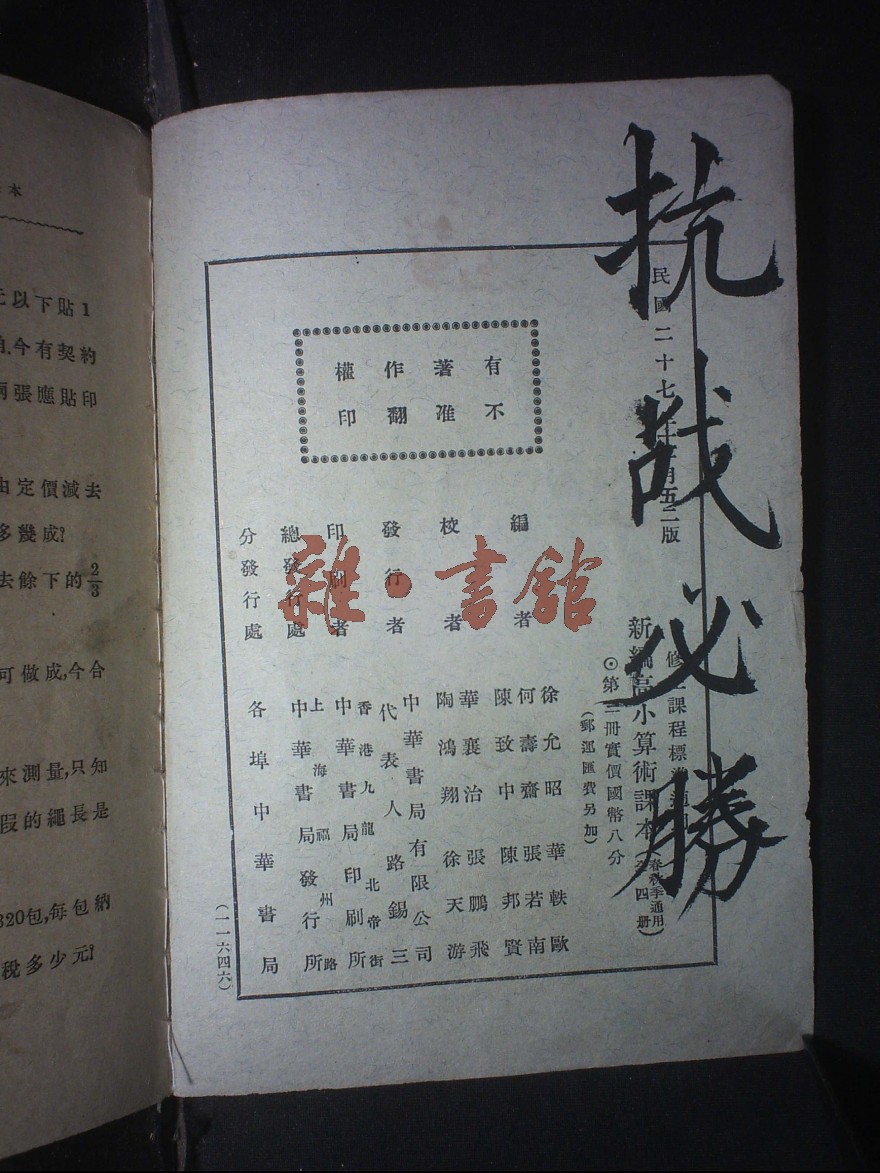 本
元以下貼1
今有契約
兩張應貼印
由定價減去
多幾成?
去餘下的2/3
可做成,今合
來測量,只知
段的繩長是
320包,每包納
稅多少元?
抗战必勝
民國二十七年 月五二版
修 課程標準適
新編高小算術課本(春秋季通用 全四冊)
⊙第三冊實價國幣八分
(郵運匯費另加)
有著作權
不准翻印
編者 徐允昭 華軼歐
何壽齋 張若南
陳致中 陳邦賢
校者 華襄治 張鵬飛
陶鴻翔 徐天游
發行者 中華書局有限公司
代表人 路錫三
印刷者 香港九龍北帝街
中華書局印刷所
總發行處 上海福州路
中華書局發行所
分發行處 各埠中華書局
(一一六四六)
雜·書館